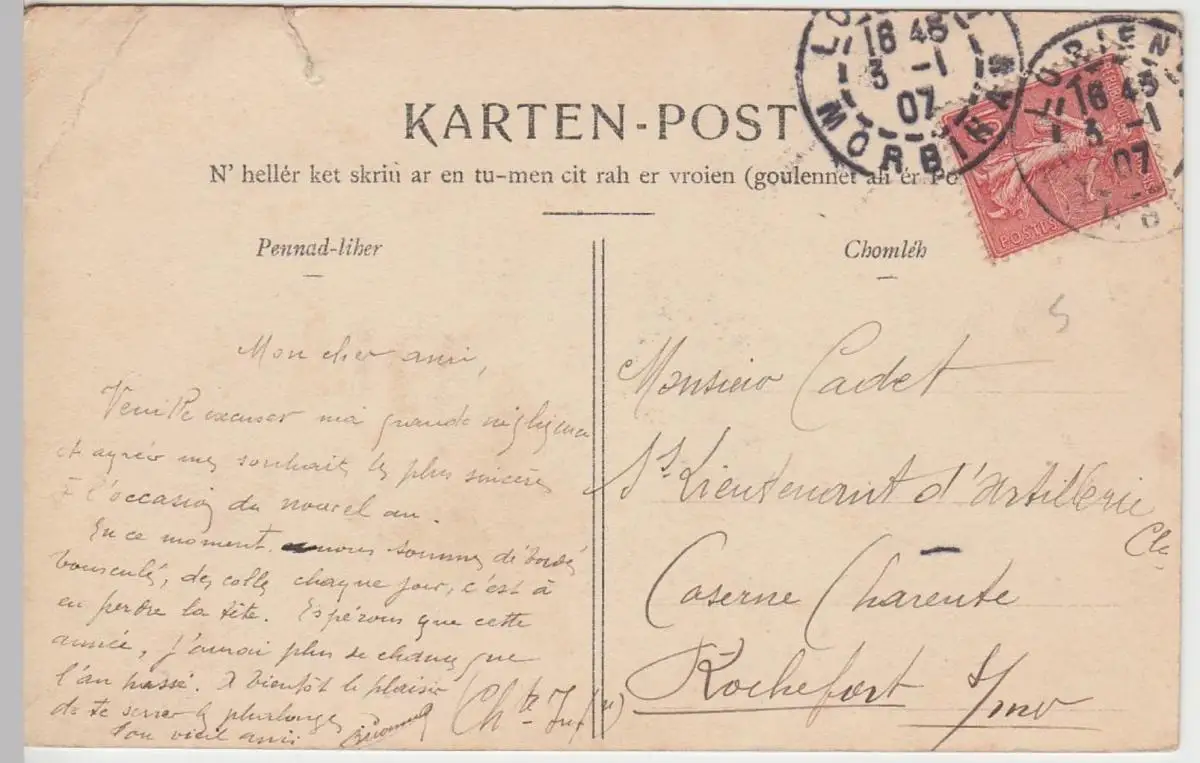 KARTEN-POST
N' hellér ket skriü ar en tu-men cit rah er vroien (goulennet ali ér Po
Pennad-liher
Chomléh
LORIENT
16 45
3 -1
07
MORBIHAN
16 45
3 -1
07
POSTES
Mon cher ami,
excuser ma grande négligence
et agréer mes souhaits les plus sincères
à l'occasion du nouvel an.
En ce moment nous sommes débordés
bousculés, des colles chaque jour, c'est à
en perdre la tête. Espérons que cette
année, j'aurai plus de chance que
l'an passé. A bientôt le plaisir
de te serrer la
Ton vieil ami
Monsieur Cadet
s/s Lieutenant d'artillerie
Cle
Caserne Charente
Rochefort s/mer